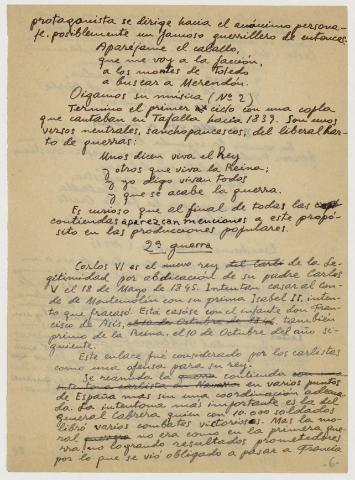 protagonista se dirige hacia el anónimo persona-
je, posiblemente un famoso guerrillero de entonces.
Aparéjame el caballo,
que me voy a la facción,
a los montes de Toledo
a buscar a Merendón.
Oigamos su música (Nº 2)
Termino el primer ciclo con una copla
que cantaban en Tafalla hacia 1839. Son unos
versos neutrales, sanchopancescos, del liberal har-
to de guerras:
Unos dicen viva el Rey
y otros que viva la Reina;
y yo digo vivan todos
y que se acabe la guerra.
Es curioso que al final de todas las
contiendas aparezcan menciones a este propó-
sito en las producciones populares.
2ª guerra
Carlos VI es el nuevo rey de la Le-
gitimidad, por abdicación de su padre Carlos
V el 18 de Mayo de 1845. Intentan casar al Con-
de de Montemolín con su prima Isabel II, inten-
to que fracasó. Esta casóse con el infante don Fran-
cisco de Asís, 10 de Octubre de también
primo de la Reina, el 10 de Octubre del año si-
guiente.
Este enlace fué considerado por los carlistas
como una ofensa para su rey.
Se reanuda la guerra
intentona carlista en Navarra en varios puntos
de España mas sin una coordinación adecua-
da. La intentona más importante es la del
general Cabrera, quien con 10.000 soldados
libró varios combates victoriosos. Mas la mo-
ral no era como en la primera gue-
rra, no logrando resultados prometedores
por lo que se vió obligado a pasar a Francia
-6-